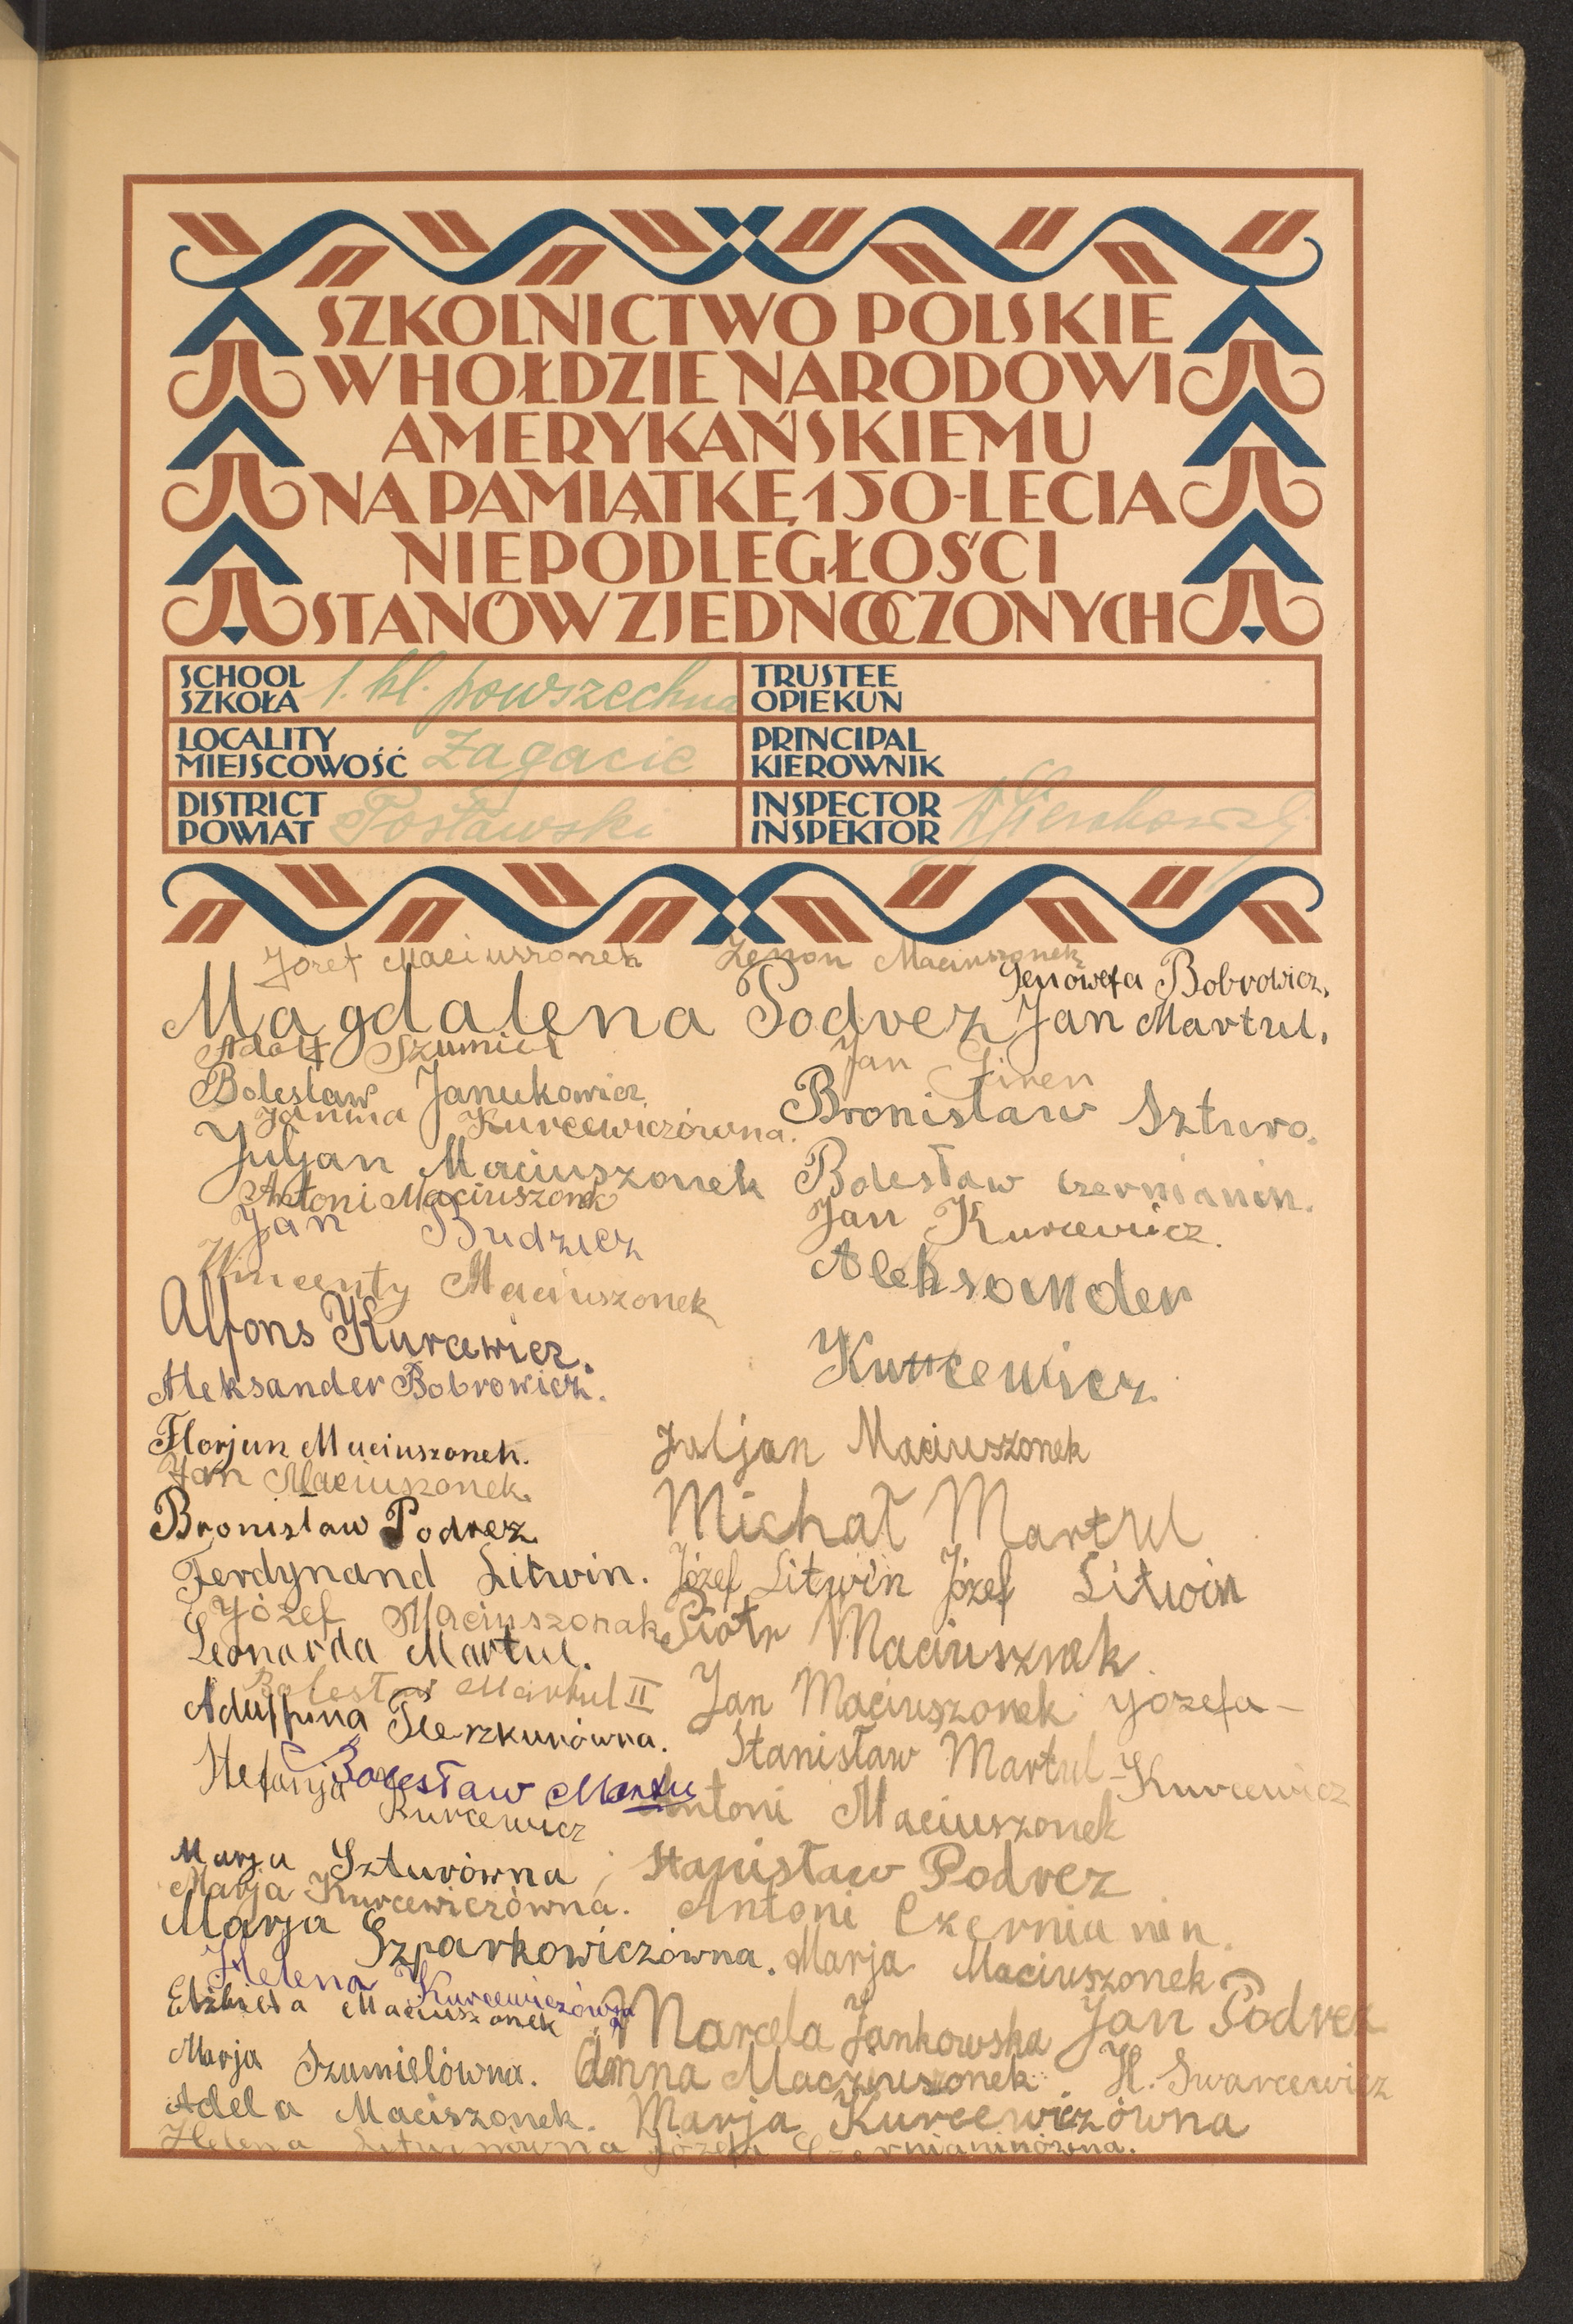 SZKOLNICTWO POLSKIE
W HOŁDZIE NARODOWI
AMERYKAŃSKIEMU
NA PAMIĄTKĘ 150-LECIA
NIEPODLEGŁOŚCI
STANÓW ZJEDNOCZONYCH
SCHOOL
SZKOŁA 1. kl. powszechna
TRUSTEE
OPIEKUN
LOCALITY
MIEJSCOWOŚĆ Zagacie
PRINCIPAL
KIEROWNIK
DISTRICT
POWIAT Postawski
INSPECTOR
INSPEKTOR
Józef Maciuszonek Zenon Maciuszonek
Genowefa Bobrowicz.
Magdalena Podrez Jan Martul.
Adolf Szumiel
Jan Giren
Bolesław Janukowicz
Bronisław Szturo.
Janina Kurcewiczówna.
Juljan Maciuszonek
Bolesław Czernianin.
Antoni Maciuszonek
Jan Kurcewicz.
Jan Budzicz
Aleksander
Wincenty Maciuszonek
Alfons Kurcewicz.
Kurcewicz
Aleksander Bobrowicz.
Florjan Maciuszonek.
Juljan Maciuszonek
Jan Maciuszonek.
Bronisław Podrez
Michał Martul
Ferdynand Litwin. Józef Litwin Józef Litwin
Józef Maciuszonak Piotr Maciusznek
Leonarda Martul.
Bolesław Martul II Jan Maciuszonek Jozefa-
Kurcewicz
Stanisław Martul
Stefanja Kurcewicz
Bolesław
Antoni Maciuszonek
Marja Szturówna
Stanisław Podrez
Marja Kurcewiczówna. Antoni Czernianin.
Marja Szparkowiczówna. Marja Maciuszonek
Helena Kurcewiczówna
Elżbieta Maciuszonek
Marcela Jankowska Jan Podrez
Marja Szumielówna. Anna Maciuszonek H. Swarcewicz
Adela Maciszonek. Marja Kurcewiczówna
Helena Litwinówna Józefa Czernianinówna.